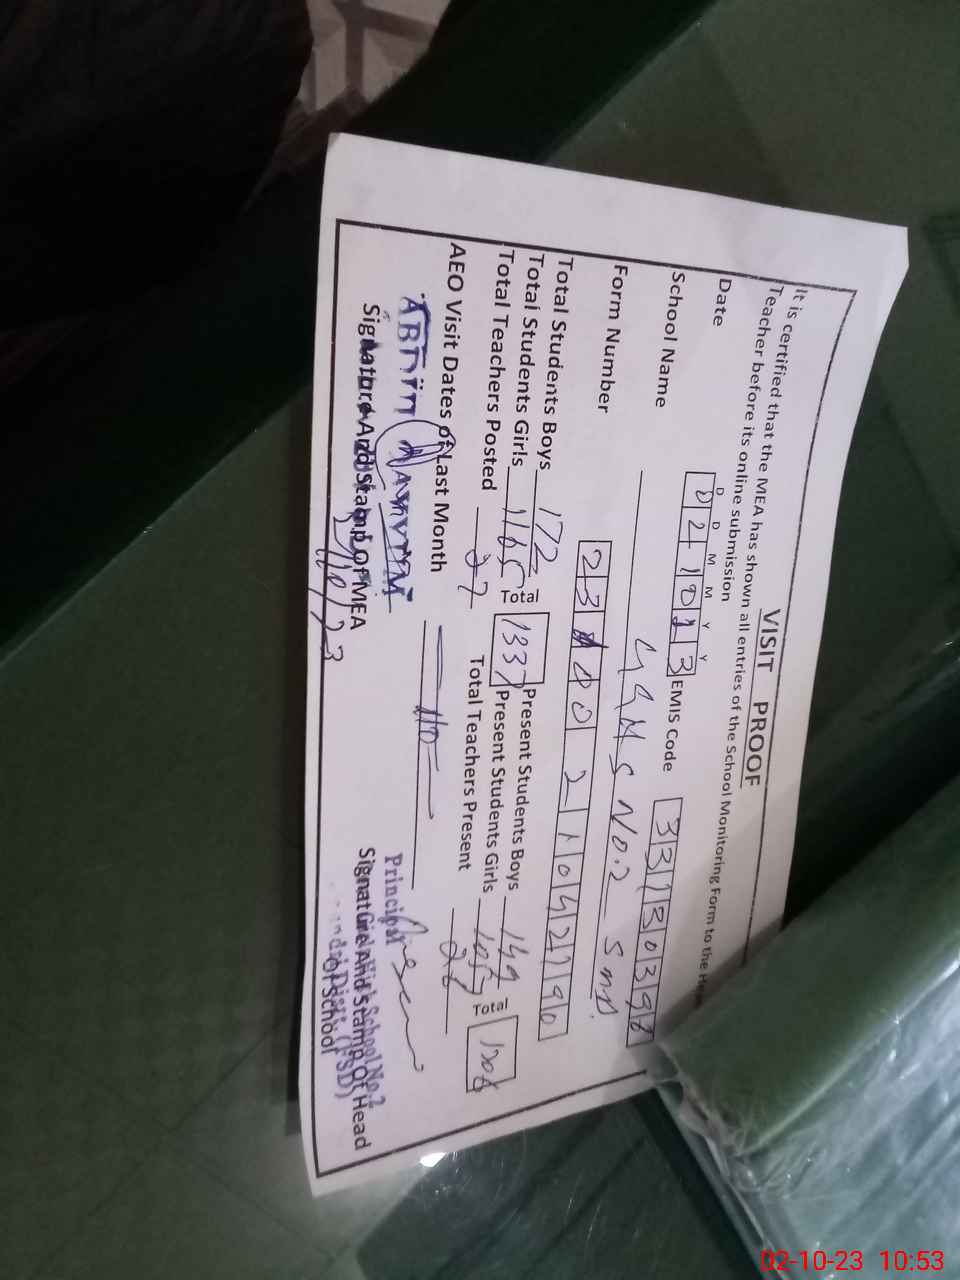 VISIT PROOF
It is certified that the MEA has shown all entries of the School Monitoring Form to the
Teacher before its online submission
D D M M Y Y
Date 02 10 23 EMIS Code 33130398
School Name GGHS No.2
Form Number 23
Total Students Boys 172 Present Students Boys 149
Total Students Girls 1165 Total 1337 Present Students Girls 1059 Total 1208
Total Teachers Posted 27 Total Teachers Present 26
AEO Visit Dates of Last Month
Principal
Signature And Stamp Of MEA Signature And Stamp Of Head
Of School
02-10-23 10:53